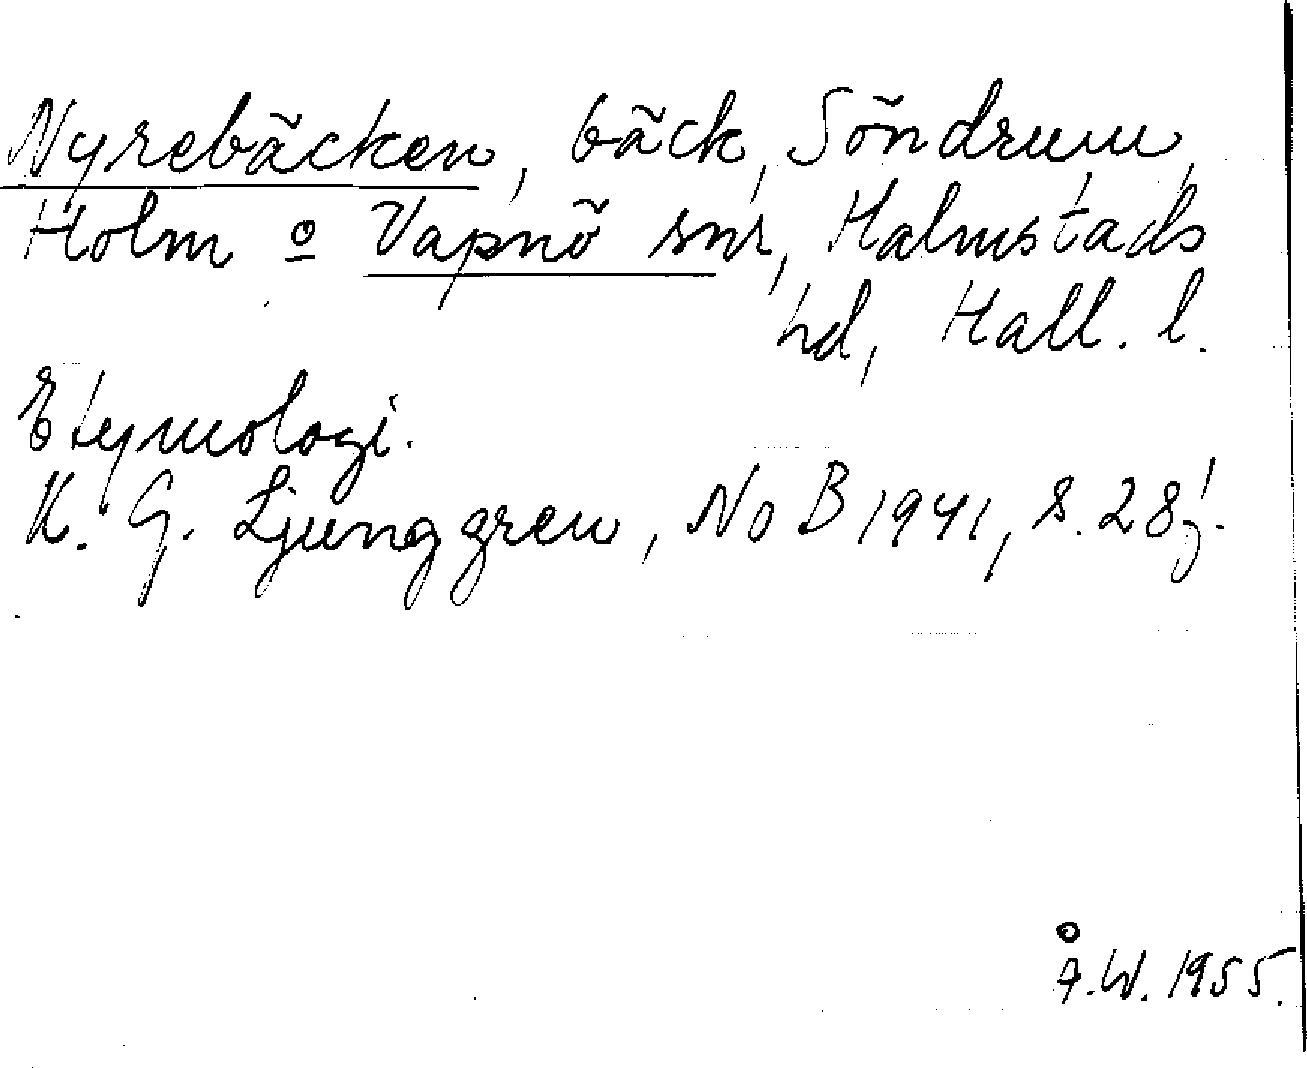 Nyrebäcken, bäck, Söndrum,
Holm o Vapnö snr, Halmstads
hd, Hall. l.
Etymologi.
K. G. Ljunggren, NoB 1941, s. 28f.
Å.W. 1955.